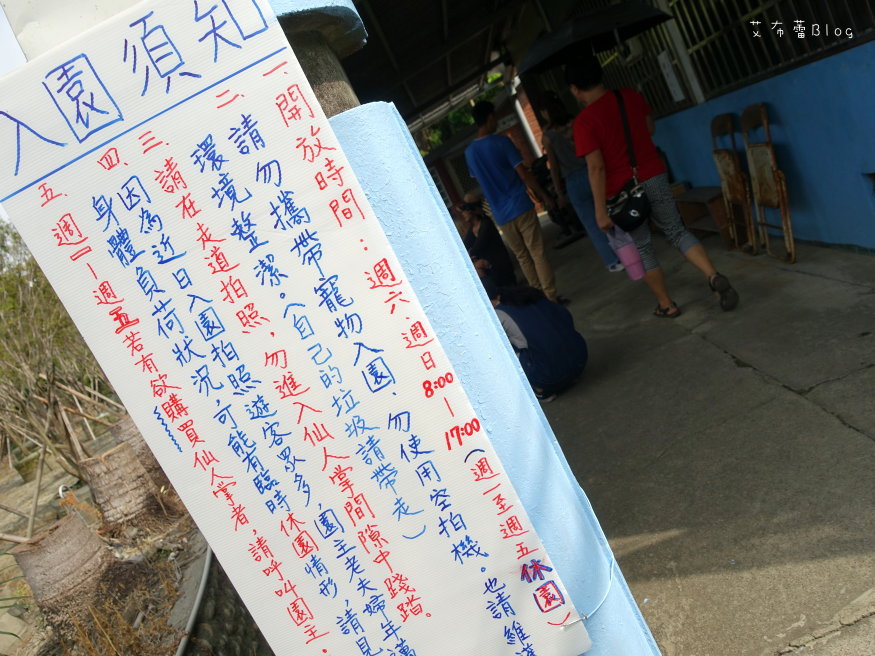 艾布蕾Blog
入園須知
一、開放時間：週六、週日 8:00－17:00（週一至週五休園）
二、請勿攜帶寵物入園、勿使用空拍機。也請維護
環境整潔。（自己的垃圾請帶走）
三、請在走道拍照，勿進入仙人掌間隙中踐踏。
四、因為近日入園拍照遊客眾多，園主老夫婦年邁
身體負荷狀況，可能有臨時休園情形，請見
五、週一－週五若有欲購買仙人掌者，請呼叫園主。